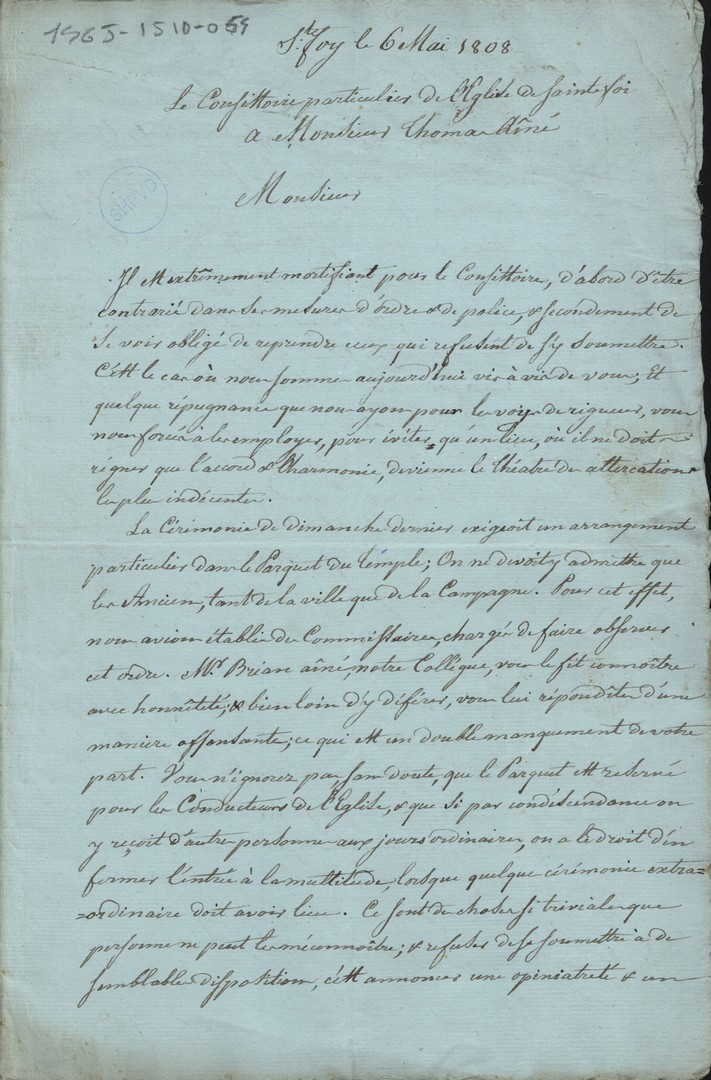 1965-1510-059
Ste. foy le 6 Mai 1808
Le Consistoire particulier de l'Eglise de Sainte foi
a Monsieur Thomas Aîné
SHPVD
Monsieur
Il est extrêmement mortifiant pour le Consistoire, d'abord d'être
contrarié dans ses mesures d'ordre & de police, & secondement de
se voir obligé de reprendre ceux qui refusent de s'y soumettre.
C'est le cas où nous sommes aujourd'hui vis à vis de vous; Et
quelque répugnance que nous ayons pour les voyes de rigueur, vous
nous forcés à les employer, pour éviter qu'un lieu, où il ne doit
règner que l'accord & l'harmonie, devienne le théatre des altercations
les plus indécentes.
La Cérémonie de dimanche dernier exigeoit un arrangement
particulier dans le Parquet du temple; On ne devoit y admettre que
les Anciens, tant de la ville que de la Campagne. Pour cet effet,
nous avions établi des Commissaires, chargés de faire observer
cet ordre. Mr. Brian aîné, notre Collègue, vous le fit connoître
avec honnêteté; & bien loin d'y déférer, vous lui répondites d'une
maniere offensante; ce qui est un double manquement de votre
part. Vous n'ignorez pas sans doute, que le Parquet est reservé
pour les Conducteurs de l'Eglise, & que si par condéscendance on
y reçoit d'autres personnes aux jours ordinaires, on a le droit d'en
fermer l'entrée à la multitude, lorsque quelque cérémonie extra=
=ordinaire doit avoir lieu. Ce sont des choses si triviales que
personne ne peut les méconnoître; & refuser de se soumettre à de
semblables dispositions, c'est annoncer une opiniatreté & un